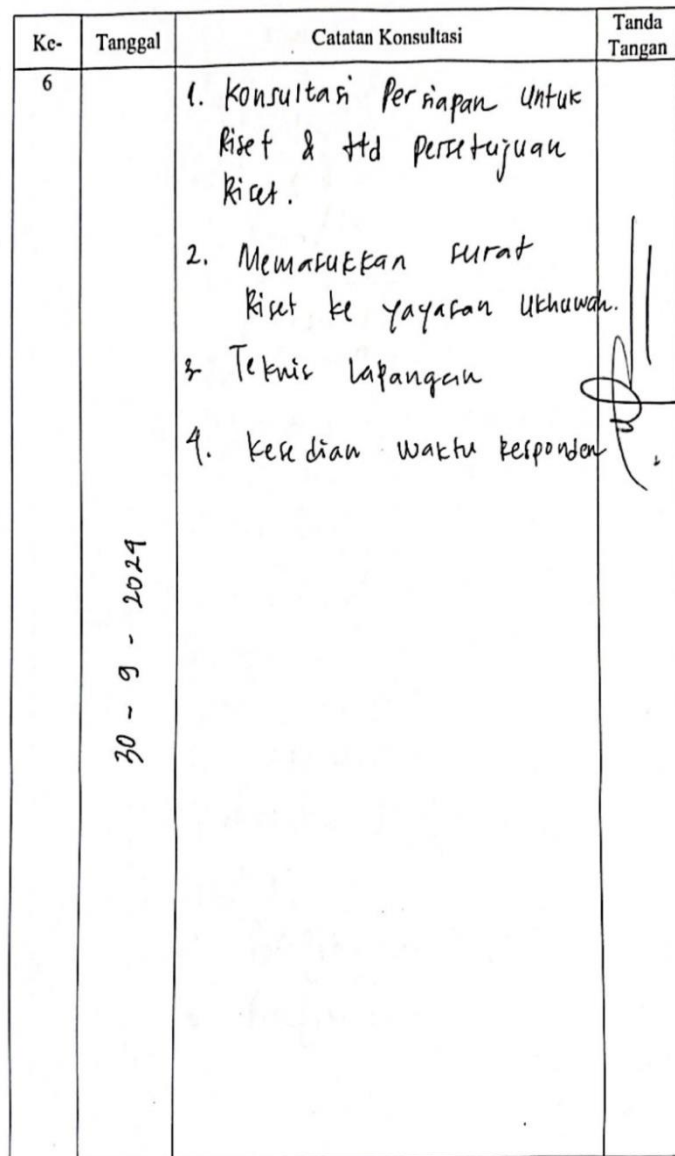 Ke-
Tanggal
Catatan Konsultasi
Tanda
Tangan
6
30 - 9 - 2024
1. Konsultasi Persiapan Untuk
Riset & ttd persetujuan
Riset.
2. Memasukkan surat
Riset ke yayasan Ukhuwah.
3 Teknis lapangan
4. kesedian waktu responden